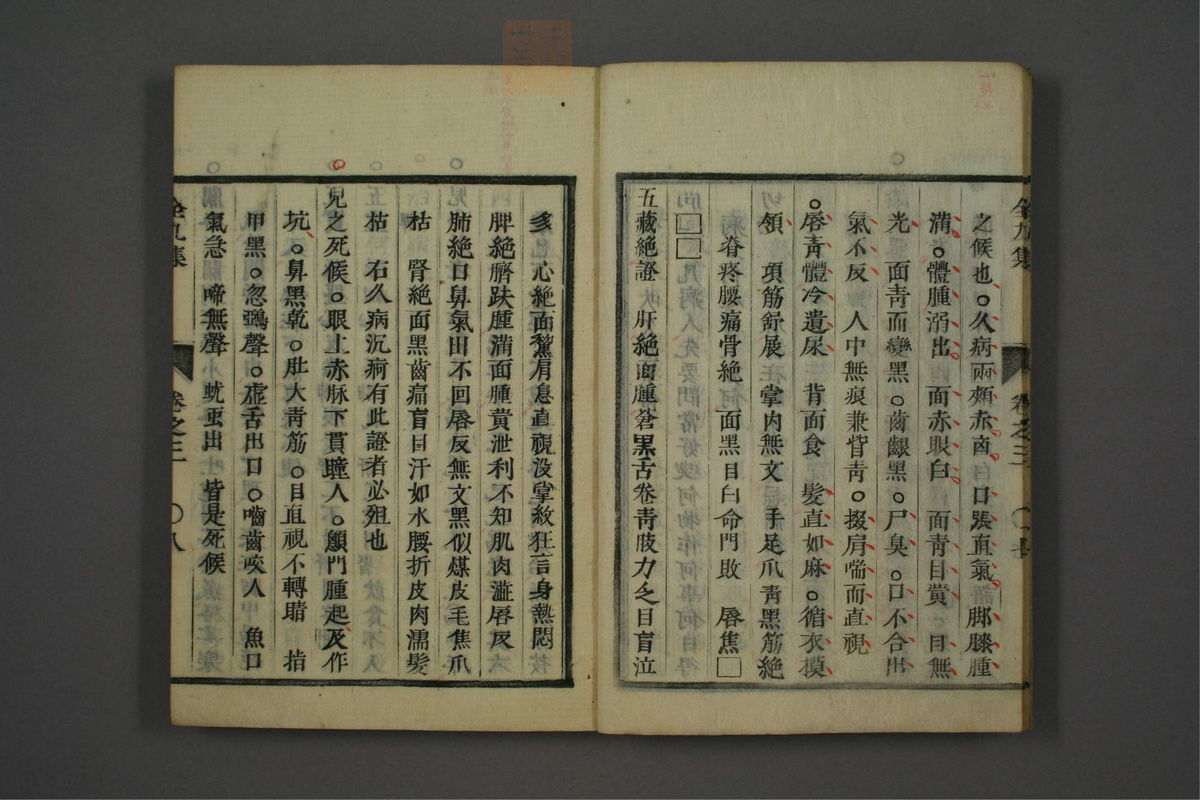 之候也。久病兩頰赤 口張直氣 脚膝腫
滿。體腫溺出。面赤眼白 面青目黄 目無
光 面青而變黑。齒齦黑。尸臭。口不合出
氣不反 人中無痕兼皆青。掇肩喘而直視
。唇青體冷遺尿 背面食 髮直如麻。循衣摸
領 項筋舒展 掌内無文 手足爪青黑筋絶
脊疼腰痛骨絶 面黑目白命門敗 唇焦□
□□
五藏絶證 肝絶面腫蒼黒舌卷青肢力乏目盲泣
多 心絶面黧肩息直視没掌紋狂言身熱悶
脾絶臍趺腫滿面腫黄泄利不知肌肉澁唇反
肺絶口鼻氣出不回唇反無文黑似煤皮毛焦爪
枯 腎絶面黑齒痛盲目汗如水腰折皮肉濡髪
枯 右久病沉痾有此證者必殂也
兒之死候。眼上赤脉下貫瞳人。顖門腫起及作
坑。鼻黑乾。肚大青筋。目直視不轉睛 指
甲黑。忽鵶聲。虚舌出口。嚙齒咬人 魚口
氣急 啼無聲 蚘虫出 皆是死候
全九集 卷之三 〇八
全九集 卷之三